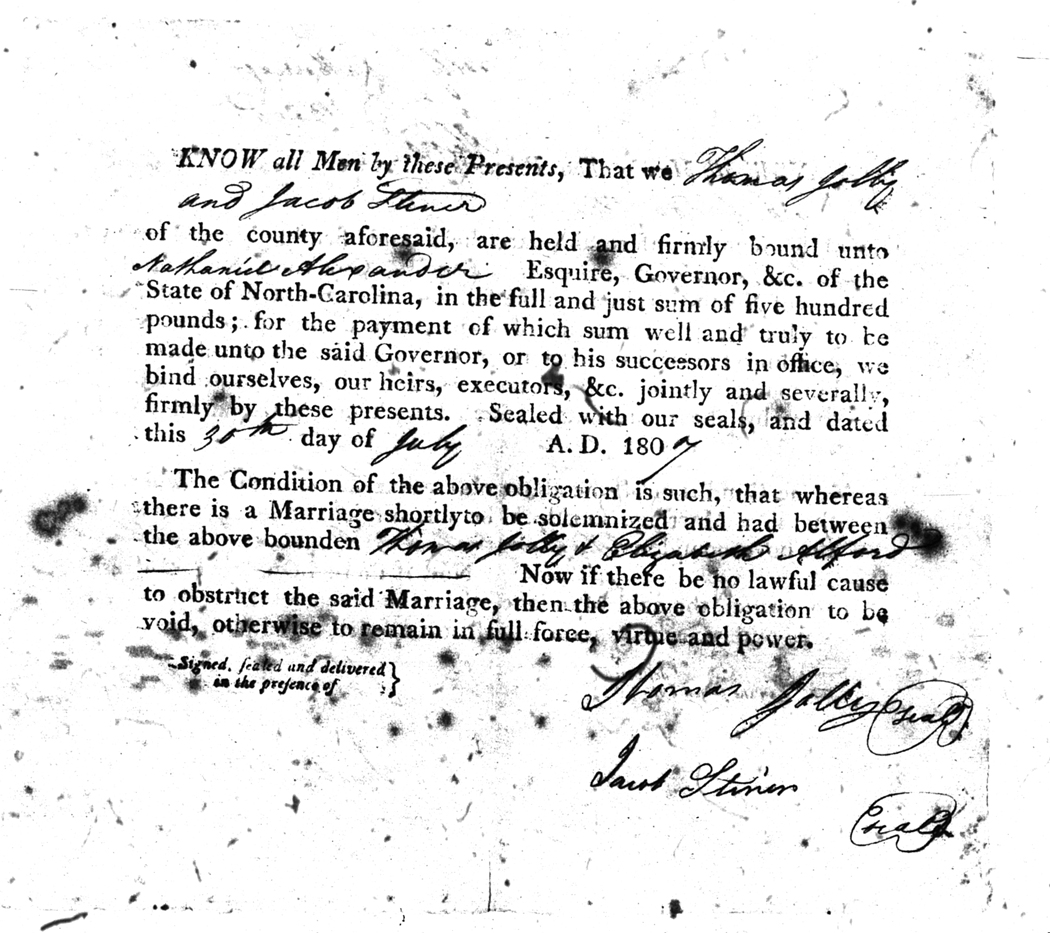 KNOW all Men by these Presents, That we Thomas Jolly
and Jacob Stiner
of the county aforesaid, are held and firmly bound unto
Nathaniel Alexander Esquire, Governor, &c. of the
State of North-Carolina, in the full and just sum of five hundred
pounds; for the payment of which sum well and truly to be
made unto the said Governor, or to his successors in office, we
bind ourselves, our heirs, executors, &c. jointly and severally,
firmly by these presents. Sealed with our seals, and dated
this 30th day of July A. D. 1807
The Condition of the above obligation is such, that whereas
there is a Marriage shortly to be solemnized and had between
the above bounden Thomas Jolly & Elizabeth Alford
Now if there be no lawful cause
to obstruct the said Marriage, then the above obligation to be
void, otherwise to remain in full force, virtue and power.
Signed, sealed and delivered
in the presence of
Thomas Jolly (seal)
Jacob Stiner
(seal)